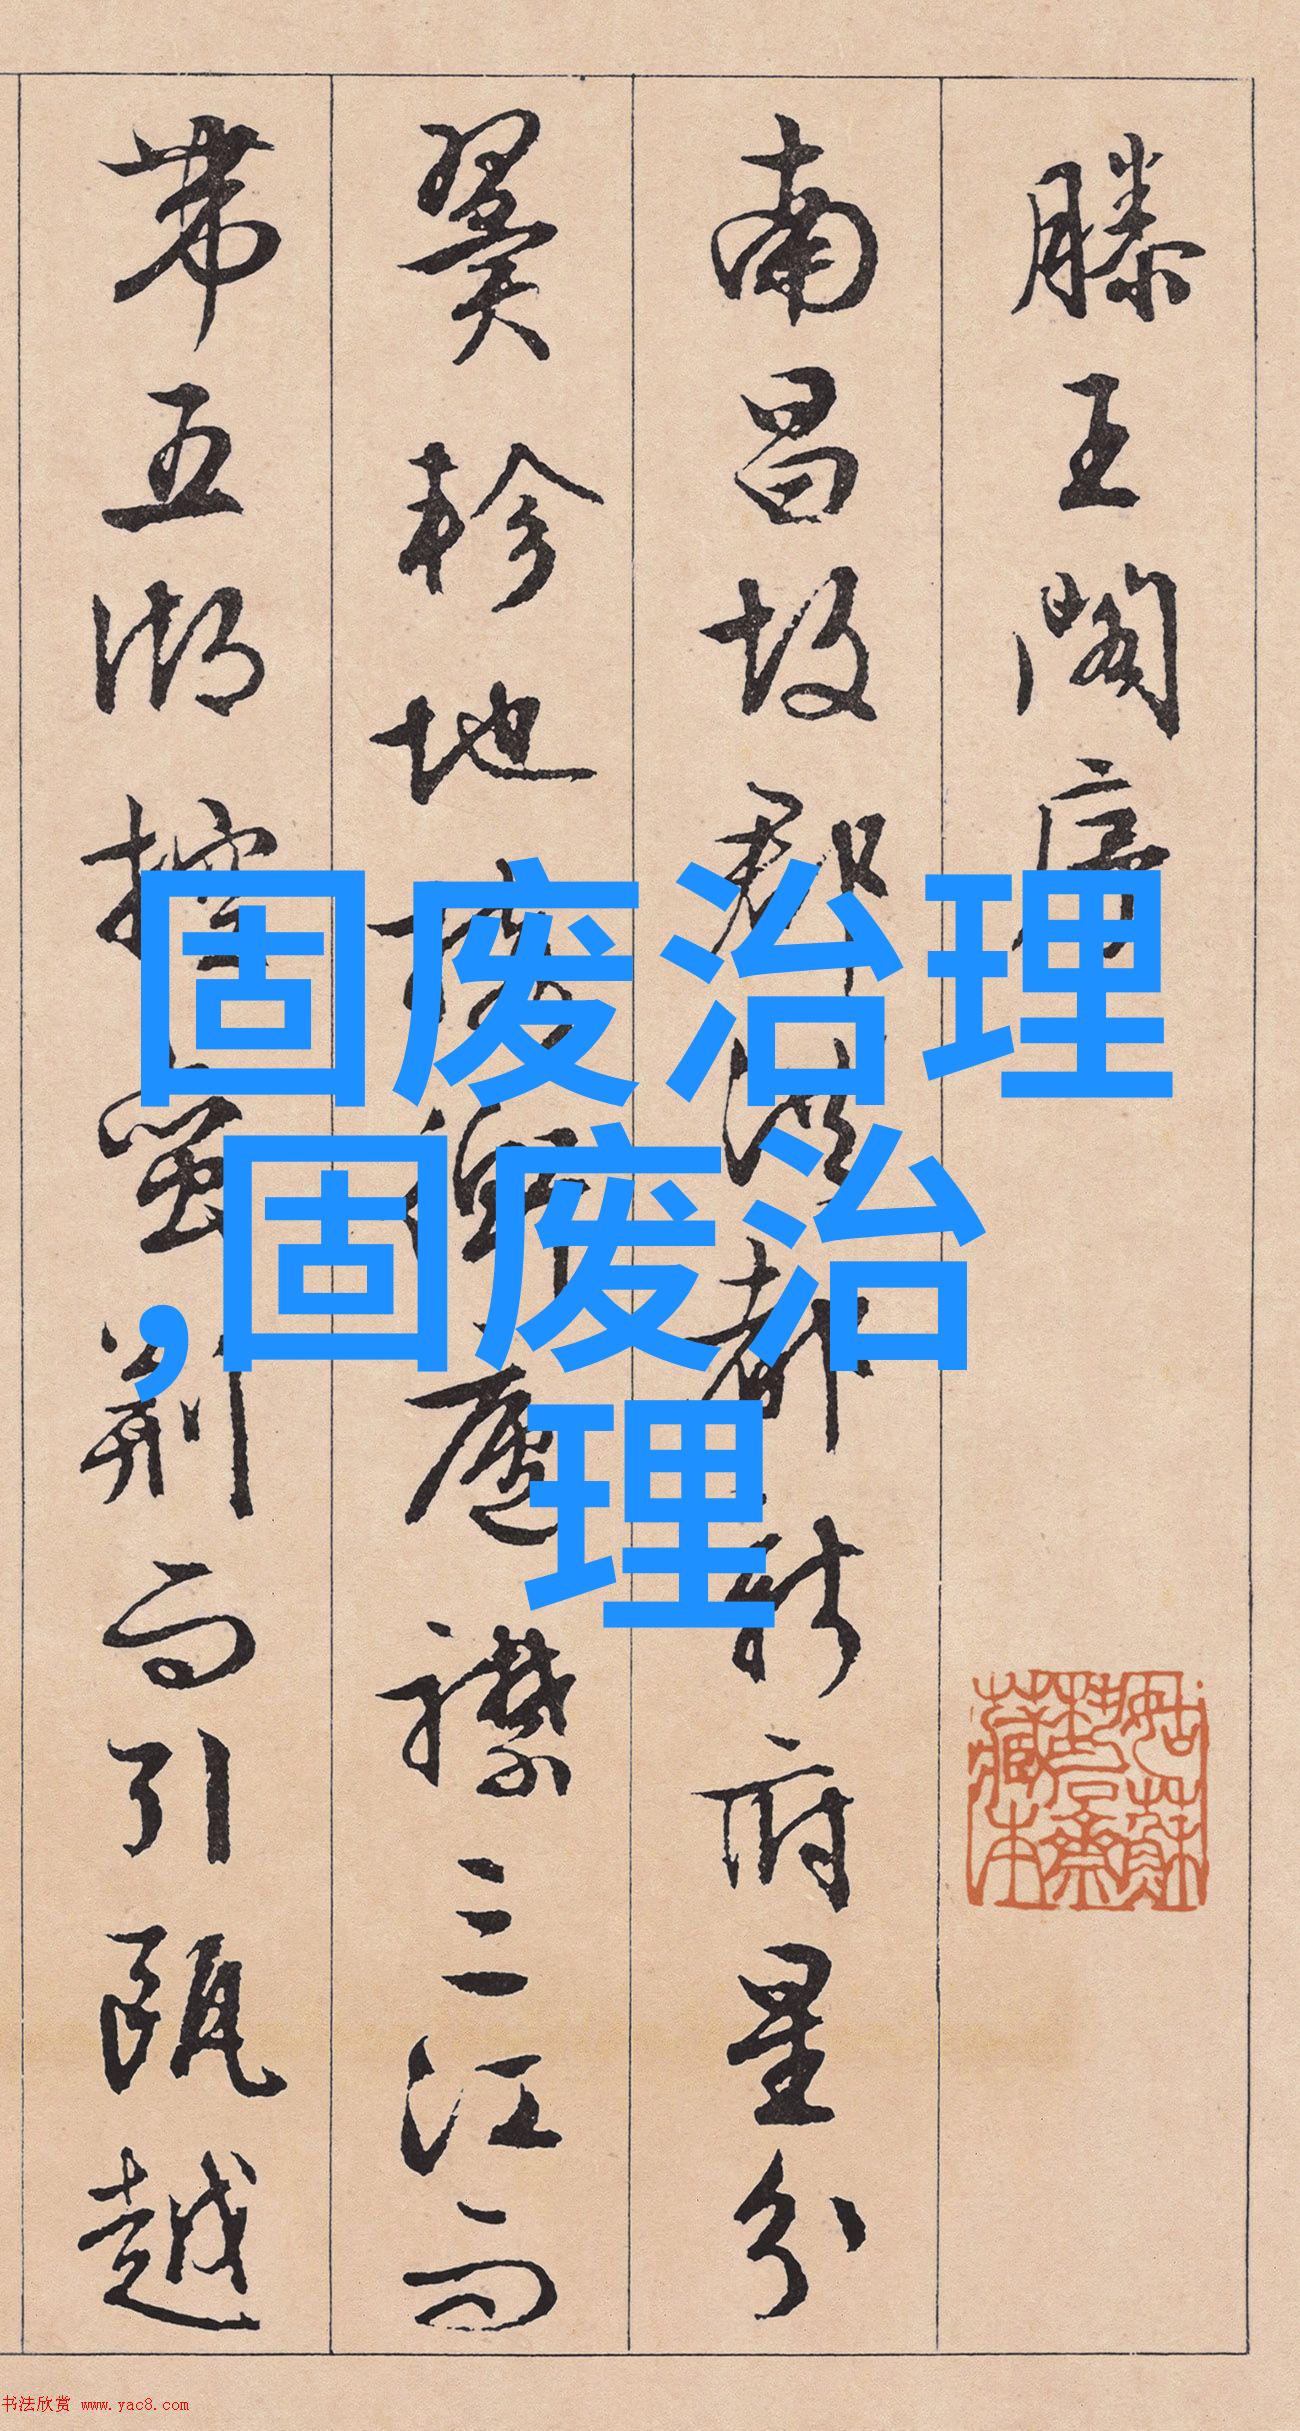 滕王阁序
南昌故郡洪都新府星分
翼轸地接衡庐襟三江而
带五湖控蛮荆而引瓯越
固废治理
,固废治
理
姑苏
曹君斋
藏本
书法欣赏 www.yac8.com